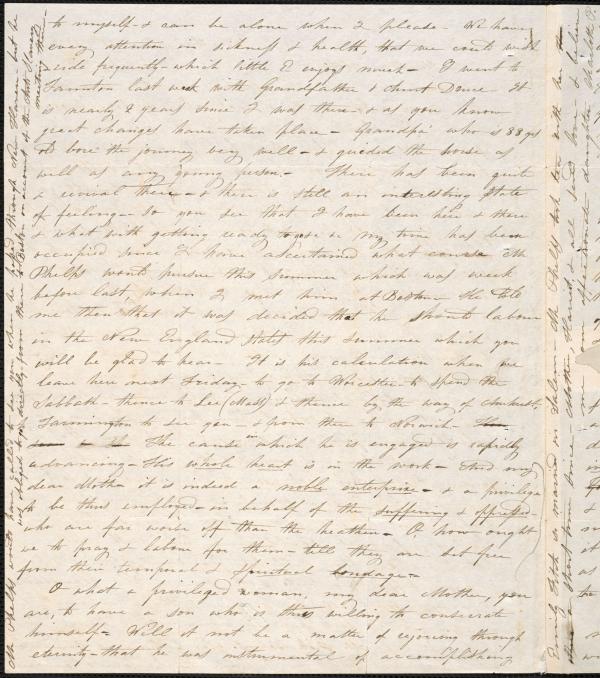 to myself & can be alone when I please - We have
every attention in sickness & health, that we could wish
ride frequently - which little E enjoys much - I went to
Taunton last week with Grandfather & Aunt Dence It
is nearly 2 years since I was there - & as you know
great changes have taken place - Grandpa who is 88 yrs
old bore the journey very well - & guided the horse as
well as any young person - There has been quite
a revival there - & there is still an interesting state
of feeling - So you see that I have been here & there
& what with getting ready to go &c my time has been
occupied since I have ascertained what course Mr
Phelps would pursue this summer which was week
before last, when I met him at Boston He told
me then that it was decided that he should labour
in the New England States this summer which you
will be glad to hear - It is his calculation when we
leave here next Friday - to go to Worcester - to spend the
Sabbath - thence to Lee (Mass) & thence by the way of Amherst,
Farmington to see you - & from there to Norwich -
The cause in which he is engaged is rapidly
advancing - His whole heart is in the work - And my
dear Mother it is indeed a noble enterprise - & a privilege
to be thus employed - in behalf of the suffering & oppressed
who are far worse off than the heathen - O, how ought
we to pray & labour for them - till they are set free
from their temporal & spiritual bondage -
O what a privileged woman, my dear Mother, you
are, to have a son who is thus willing to consecrate
himself - Will it not be a matter of rejoicing through
eternity - that he was instrumental of accomplishing
Mr Phelps would have called to see you when he passed through New Haven, but he
was obliged to go directly from there to Boston on account of the Anti Slavery
meeting there
Emily is married in Salem Mr Phelps took tea with her
a short time since - Mother, Harriet, & all send love - & believe
me my affectionate daughter Charlotte P.